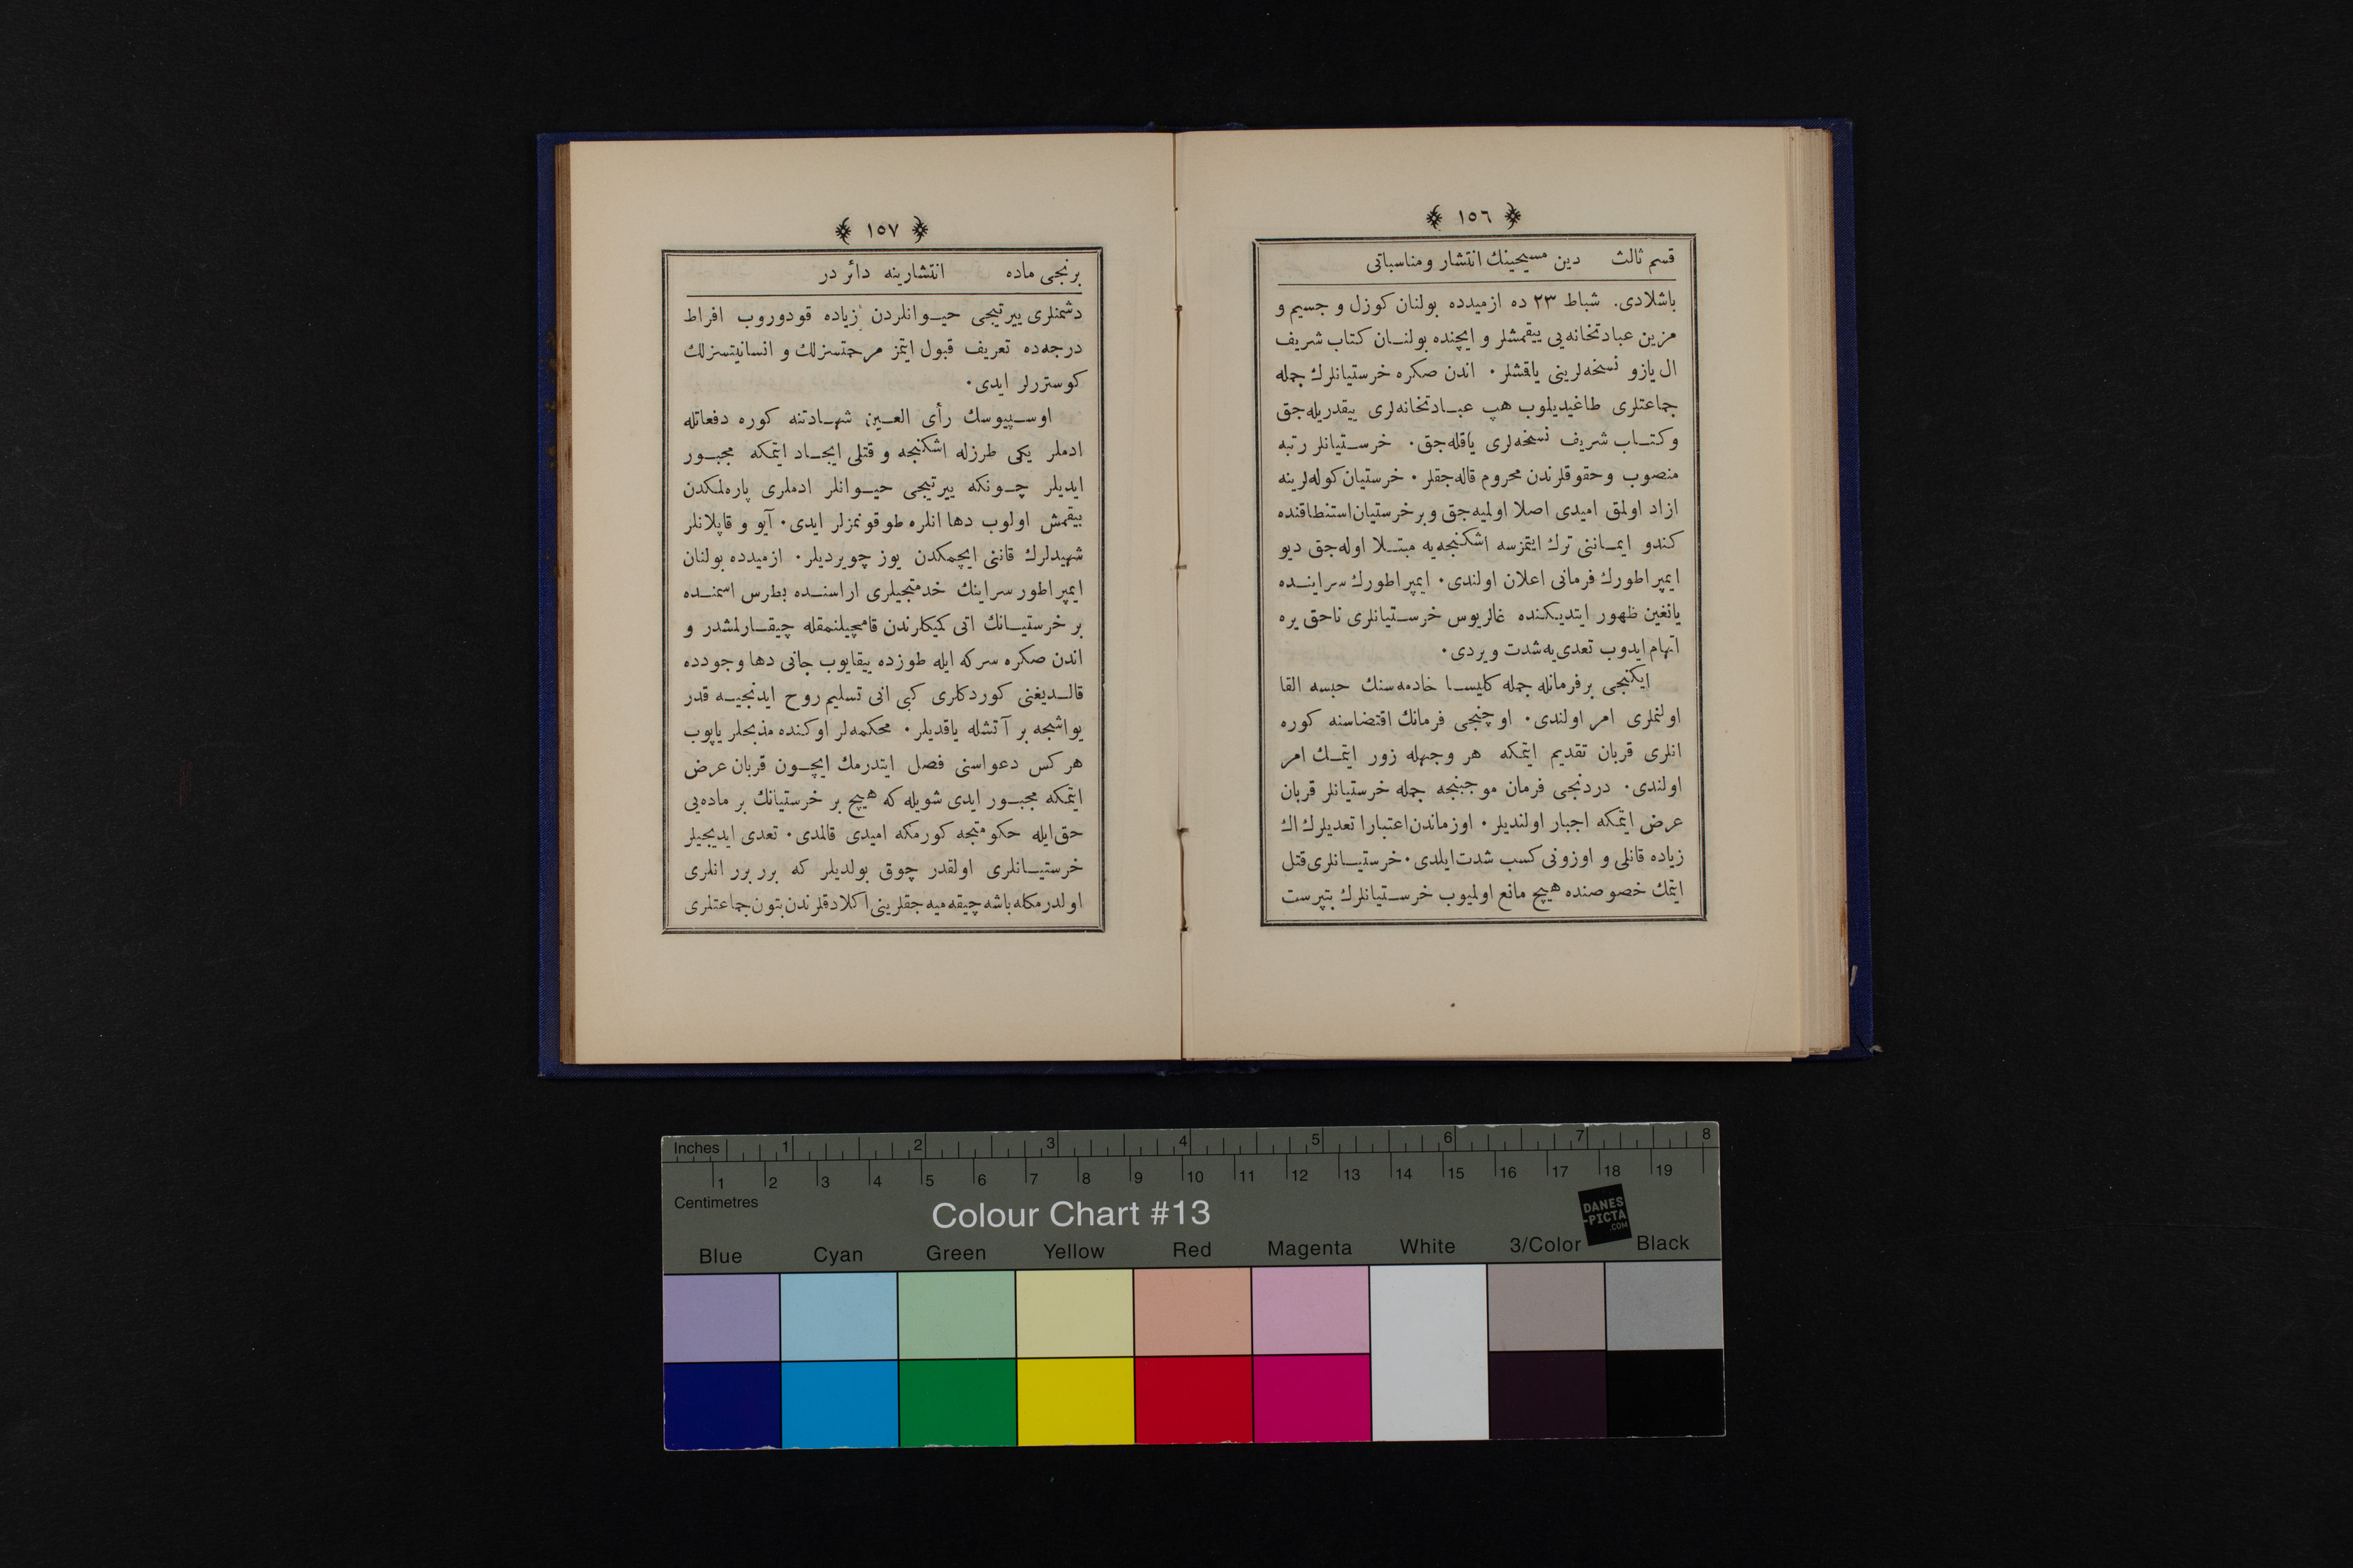 ١٥٦
قسم ثالث دين مسيحينك انتشار ومناسباتى
باشلادى. شباط ٢٣ ده ازميدده بولنان كوزل و جسيم و
مزين عبادتخانه‌يى ييقمشلر و ايچنده بولنـان كتاب شريف
ال يازو نسخه‌لرينى ياقشلر. اندن صكره خرستيانلرك جمله
جماعتلرى طاغيديلوب هپ عبـادتخانه‌لرى ييقدريله‌جق
وكتـاب شريف نسخه‌لرى ياقله‌جق. خرسـتيانلر رتبه
منصوب وحقوقلرندن محروم قاله‌جقلر. خرستيان كوله‌لرينه
ازاد اولمق اميدى اصلا اولميه‌جق وبر خرستيان استنطاقنده
كندو ايمـاننى ترك ايتمزسه اشكنجه‌يه مبتـلا اوله‌جق ديو
ايمپراطورك فرمانى اعلان اولندى. ايمپراطورك سراينـده
يانغين ظهور ايتديكنده غالريوس خرسـتيانلرى ناحق يره
اتهام ايدوب تعدى‌يه شدت ويردى.
ايكنجى بر فرمانله جمله كليسـا خادمه‌سنك حبسه القا
اولنملرى امر اولندى. اوچنجى فرمانك اقتضاسنه كوره
انلرى قربان تقديم ايتمكه هر وجهله زور ايتمـك امر
اولندى. دردنجى فرمان موجبنجه جمله خرستيانلر قربان
عرض ايتمكه اجبار اولنديلر. اوزماندن اعتبارا تعديلرك اك
زياده قانلى و اوزونى كسب شدت ايلدى. خرستيـانلرى قتل
ايتمك خصوصنده هيچ مانع اولميوب خرسـتيانلرك بتپرست
١٥٧
برنجى ماده انتشارينه دائر در
دشمنلرى ييرتيجى حيـوانلردن زياده قودوروب افراط
درجه‌ده تعريف قبول ايتمز مرحمتسزلك و انسانيتسزلك
كوستررلر ايدى.
اوسـپيوسك رأى العـين شهـادتنه كوره دفعاتله
ادملر يكى طرزله اشكنجه و قتلى ايجـاد ايتمكه مجبـور
ايديلر چـونكه ييرتيجى حيـوانلر ادملرى پاره‌لمكدن
بيقمش اولوب دها انلره طوقونمزلر ايدى. آيو و قاپلانلر
شهيدلرك قاننى ايچمكدن يوز چويرديلر. ازميدده بولنان
ايمپراطور سراينك خدمتجيلرى اراسنـده بطرس اسمنـده
بر خرستيـانك اتى كميكلرندن قامچيلنمقله چيقـارلمشدر و
اندن صكره سركه ايله طوزده ييقايوب جانى دها وجودده
قالـديغنى كوردكلرى كبى انى تسليم روح ايدنجيـه قدر
يواشجه بر آتشله ياقديلر. محكمه‌لر اوكنده مذبحلر ياپوب
هر كس دعواسنى فصل ايتدرمك ايچـون قربان عرض
ايتمكه مجبـور ايدى شويله كه هيچ بر خرستيانك بر ماده‌يى
حق ايله حكومتجه كورمكه اميدى قالمدى. تعدى ايديجيلر
خرستيـانلرى اولقدر چوق بولديلر كه برر برر انلرى
اولدرمكله باشه چيقه‌ميه‌جقلرينى اكلادقلرندن بتون جماعتلرى
Inches 1 2 3 4 5 6 7 8
1 2 3 4 5 6 7 8 9 10 11 12 13 14 15 16 17 18 19
Centimetres
Colour Chart #13
DANES
-PICTA
.COM
Blue Cyan Green Yellow Red Magenta White 3/Color Black